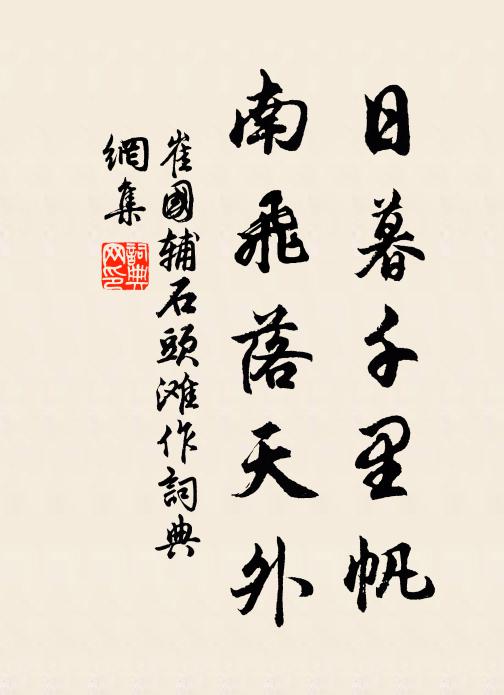 日暮千里帆
南飛落天外
崔國輔石頭滩作詞典
網集
詞典
网印